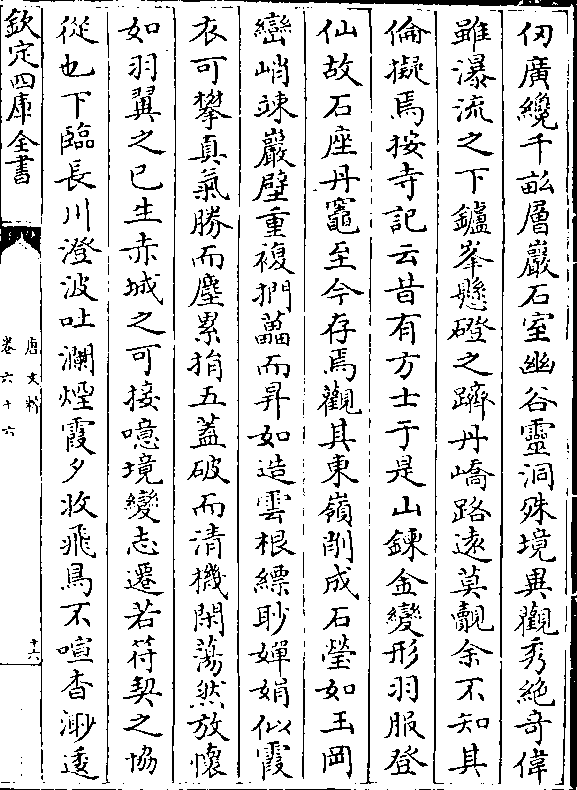 仞廣纔千畝層巖石室幽谷靈洞殊境異觀秀絶竒偉
雖瀑流之下鑪峯懸磴之躋丹嶠路遠莫覿余不知其
倫擬焉按寺記云昔有方士于是山鍊金變形羽服登
仙故石座丹竈至今存焉觀其東嶺削成石瑩如玉岡
巒峭竦巖壁重複捫蘿而昇如造雲根縹眇嬋娟似霞
衣可攀真氣勝而塵累捐五蓋破而清機閑蕩然放懷
如羽翼之已生赤城之可接噫境變志遷若符契之協
從也下臨長川澄波吐瀾煙霞夕收飛鳥不喧杳渺逶
欽定四庫全書
唐文粹
卷六十六
十六